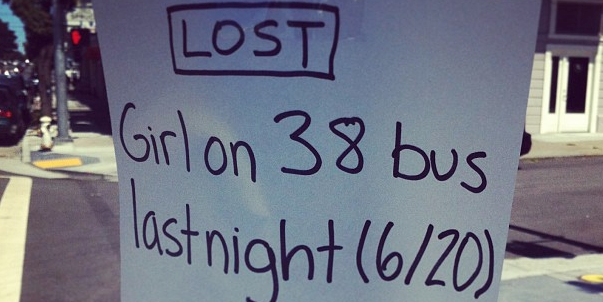 LOST
Girl on 38 bus
last night (6/20)